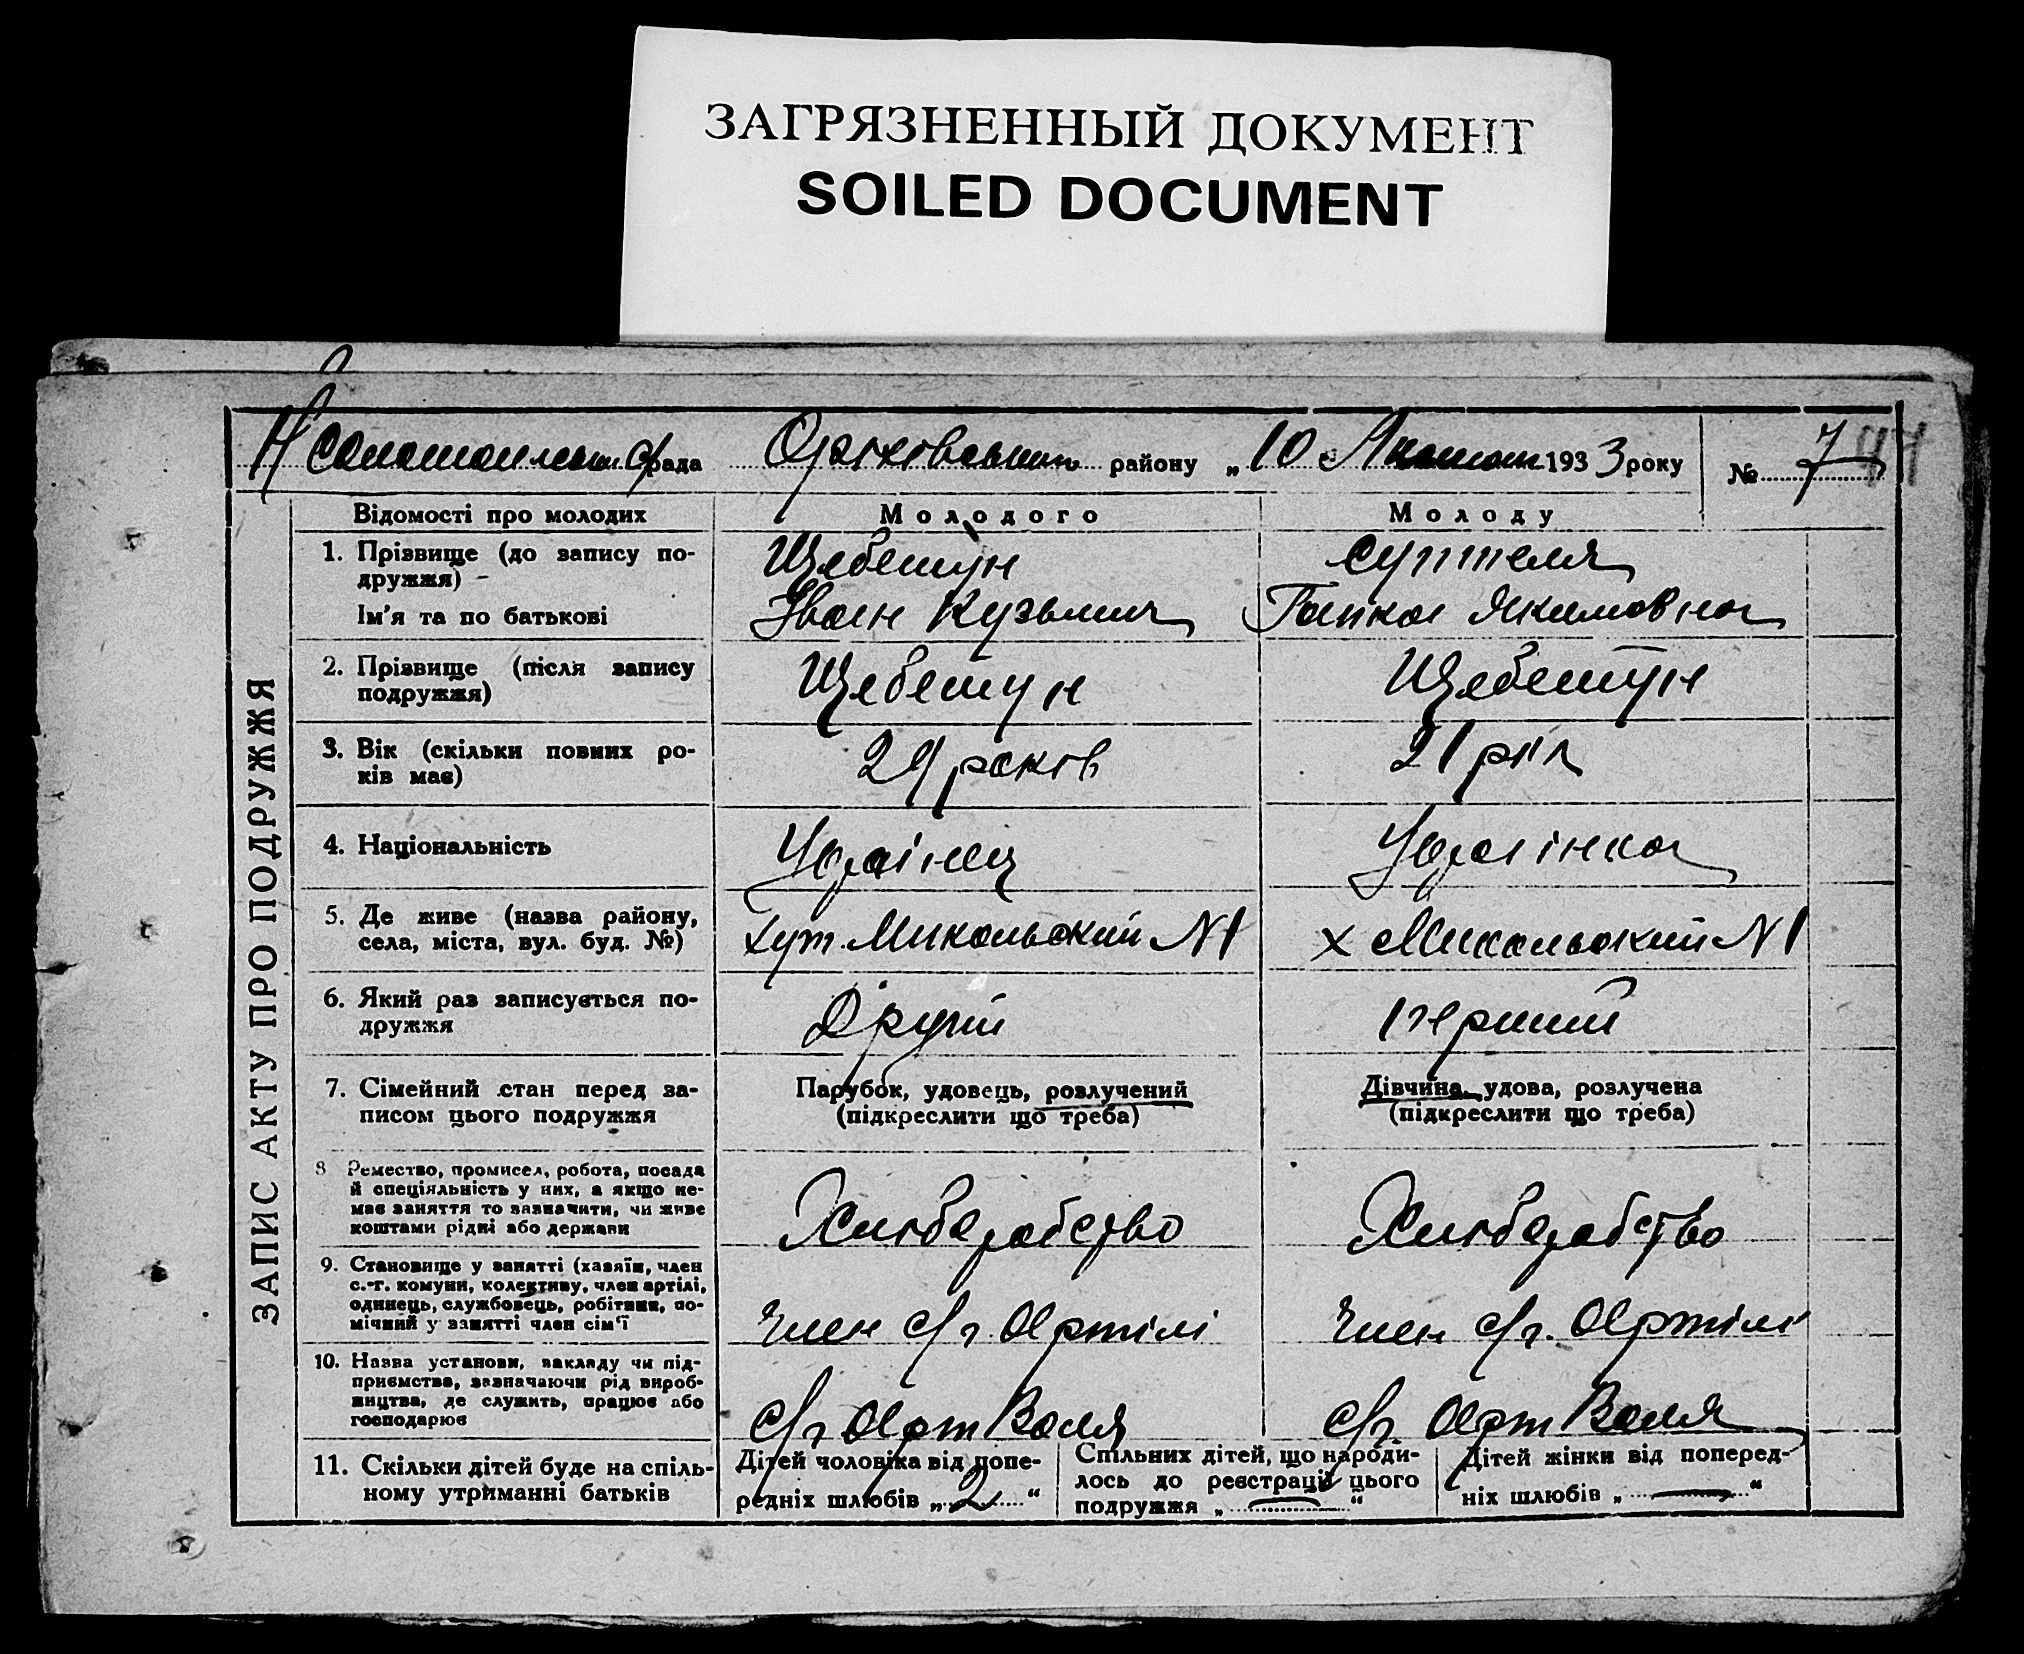 ЗАГРЯЗНЕННЫЙ ДОКУМЕНТ
SOILED DOCUMENT
рада района „10 1933 року № 7
ЗАПИС АКТУ ПРО ПОДРУЖЖЯ
Відомості про молодих
Молодого
Молоду
1. Прізвище (до запису по-
дружжя) -
Ім'я та по батькові
Щебетун
Іван Кузьмич
Суптеля
Гапка Якимовна
2. Прізвище (після запису
подружжя)
Щебетун
Щебетун
3. Вік (скільки повних ро-
ків має)
29 років
21 рік
4. Національність
Українец
Українка
5. Де живе (назва району,
села, міста, вул. буд. №)
Хут. Микольский N1
х Микольский N1
6. Який раз записується по-
дружжя
Другий
перший
7. Сімейний стан перед за-
писом цього подружжя
Парубок, удовець, розлучений
(підкреслити що треба)
Дівчина, удова, розлучена
(підкреслити що треба)
8 Ремество, промисел, робота, посада
й спеціяльність у них, а якщо не-
має заняття то зазначити, чи живе
коштами рідні або держави
Хліборобство
Хліборобство
9. Становище у занятті (хазяїн, член
с.-г. комуни, колективу, член артілі,
одинець, службовець, робітник, по-
мічний у занятті член сім'ї
Член С/г. Артілі
Член С/г. Артілі
10. Назва установи, закладу чи під-
приємства, зазначаючи рід вироб-
ництва, де служить, працює або
господарює
С/г Арт Воля
С/г. Арт Воля
11. Скільки дітей буде на спіль-
ному утриманні батьків
Дітей чоловіка від попе-
редніх шлюбів „2“
Спільних дітей, що народи-
лось до реєстрації цього
подружжя „—“
Дітей жінки від поперед-
ніх шлюбів „—“